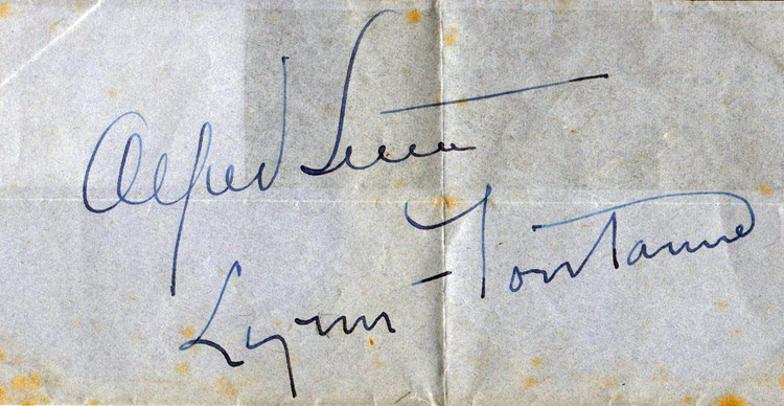 Alfred Lunt
Lynn Fontanne